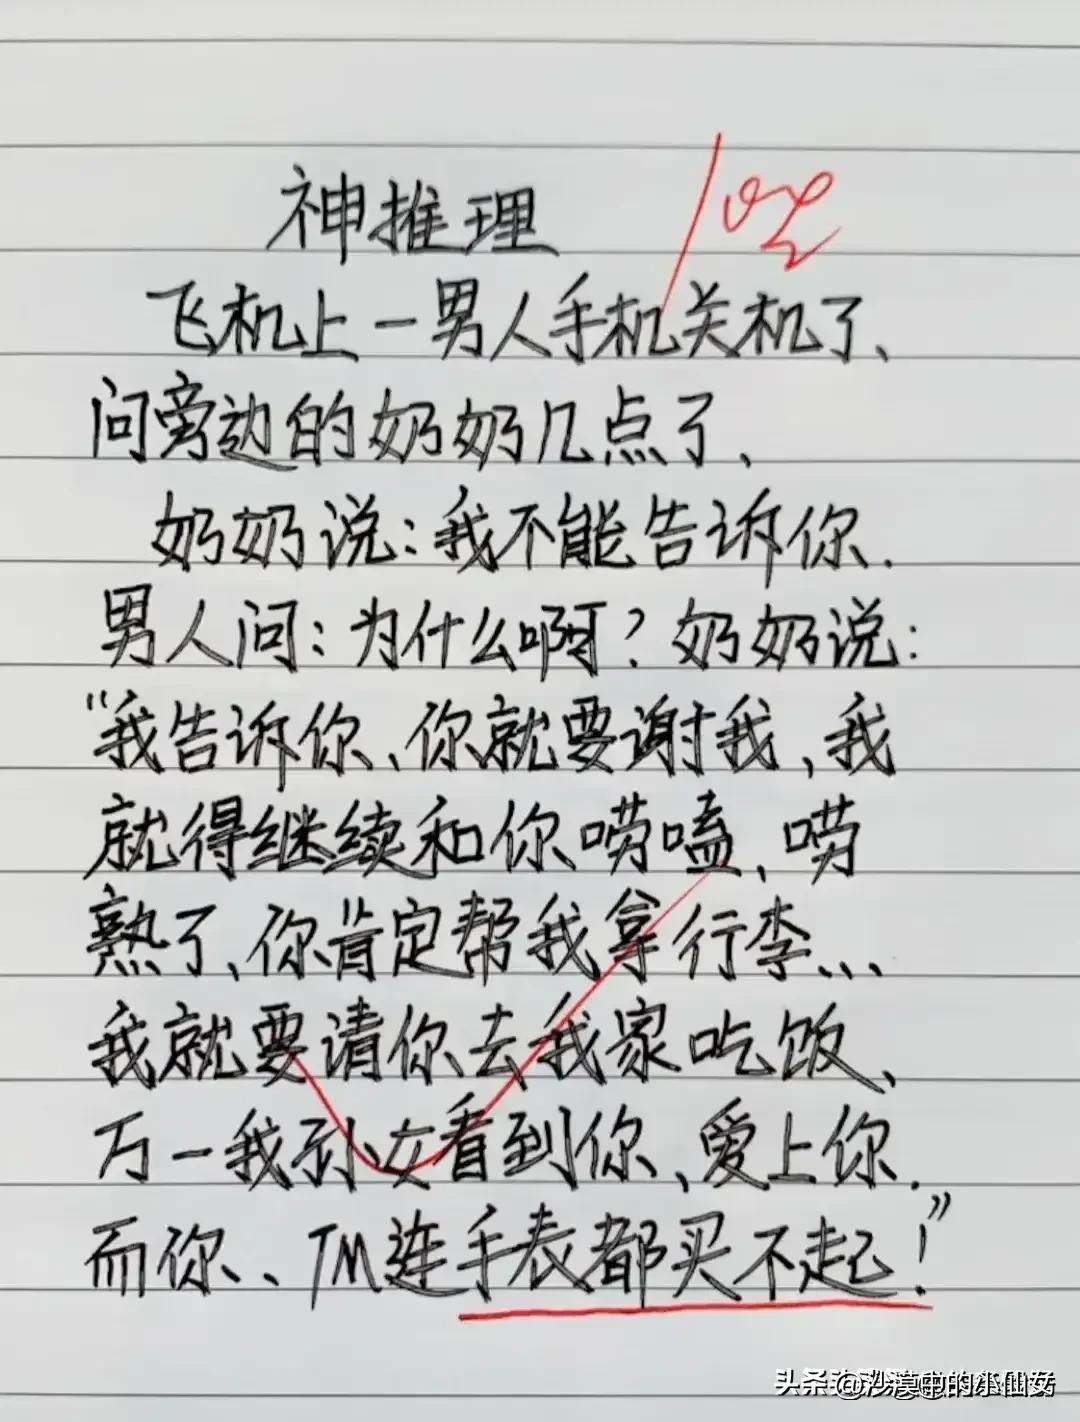 神推理
飞机上一男人手机关机了、
问旁边的奶奶几点了、
奶奶说:我不能告诉你.
男人问:为什么啊?奶奶说:
“我告诉你、你就要谢我,我
就得继续和你唠嗑、唠
熟了、你肯定帮我拿行李、、、
我就要请你去我家吃饭、
万一我孙女看到你、爱上你.
而你、TM连手表都买不起!”